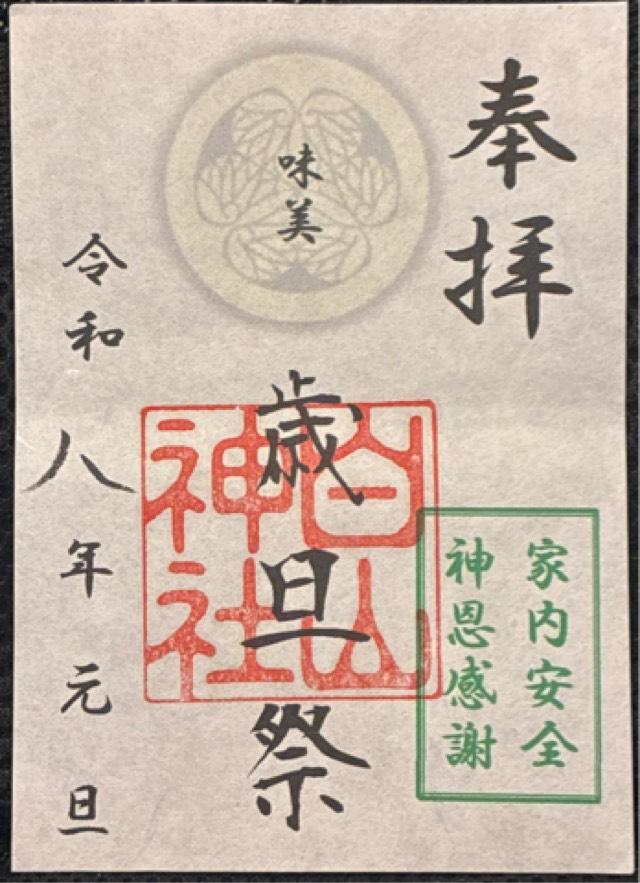 奉拝
家内安全
神恩感謝
味美
白山
神社
歳旦祭
令和八年元旦